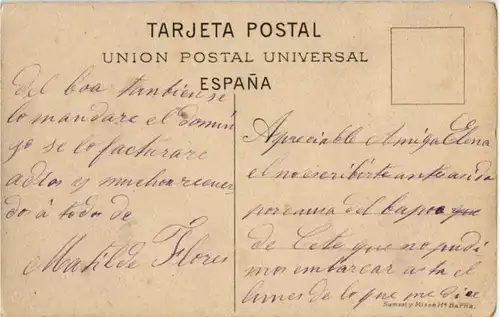 TARJETA POSTAL
UNION POSTAL UNIVERSAL
ESPAÑA
Apreciable Amiga Elena
el no escribirte antes a sido
por causa del bapor que
de Cete que no pudi
mos embarcar asta el
lunes de lo que me dice
del boa tambien se
lo mandare el domin
go se lo facturare
adios y muchos recuer
dos á todos de
Matilde Flores